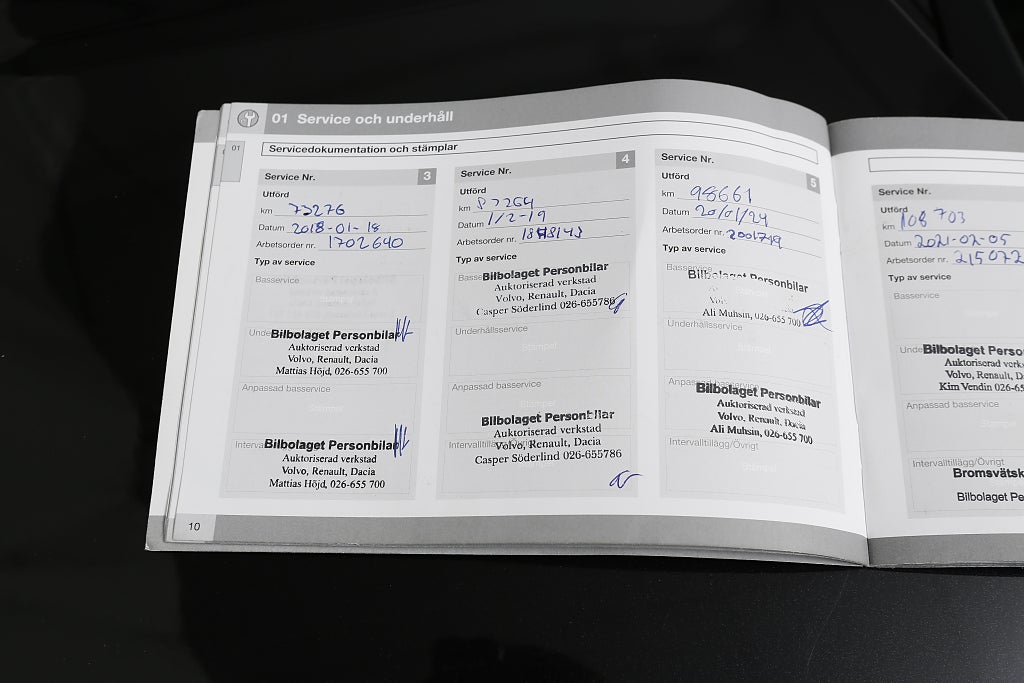 01 Service och underhåll
01
Servicedokumentation och stämplar
Service Nr. 3
Utförd
km 73276
Datum 2018-01-18
Arbetsorder nr. 1702640
Typ av service
Basservice
Stämpel
Bilbolaget Personbilar
Auktoriserad verkstad
Volvo, Renault, Dacia
Mattias Höjd, 026-655 700
Anpassad basservice
Stämpel
Bilbolaget Personbilar
Auktoriserad verkstad
Volvo, Renault, Dacia
Mattias Höjd, 026-655 700
10
Service Nr. 4
Utförd
km 87264
Datum 1/2-19
Arbetsorder nr.
Typ av service
Bilbolaget Personbilar
Auktoriserad verkstad
Volvo, Renault, Dacia
Casper Söderlind 026-655786
Underhållsservice
Stämpel
Anpassad basservice
Bilbolaget Personbilar
Auktoriserad verkstad
Intervalltillägg/Övrigt
Volvo, Renault, Dacia
Casper Söderlind 026-655786
Service Nr. 5
Utförd
km 98661
Datum 20/01/24
Arbetsorder nr. 2001749
Typ av service
Basservice
Bilbolaget Personbilar
Ali Muhsin, 026-655 700
Underhållsservice
Stämpel
Anpassad basservice
Bilbolaget Personbilar
Auktoriserad verkstad
Volvo, Renault, Dacia
Ali Muhsin, 026-655 700
Intervalltillägg/Övrigt
Stämpel
Service Nr.
Utförd
km 108 703
Datum 2021-02-05
Arbetsorder nr. 215072
Typ av service
Basservice
Bilbolaget Perso
Auktoriserad verk
Volvo, Renault, D
Kim Vendin 026-65
Anpassad basservice
Intervalltillägg/Övrigt
Bromsvätsk
Bilbolaget Pe